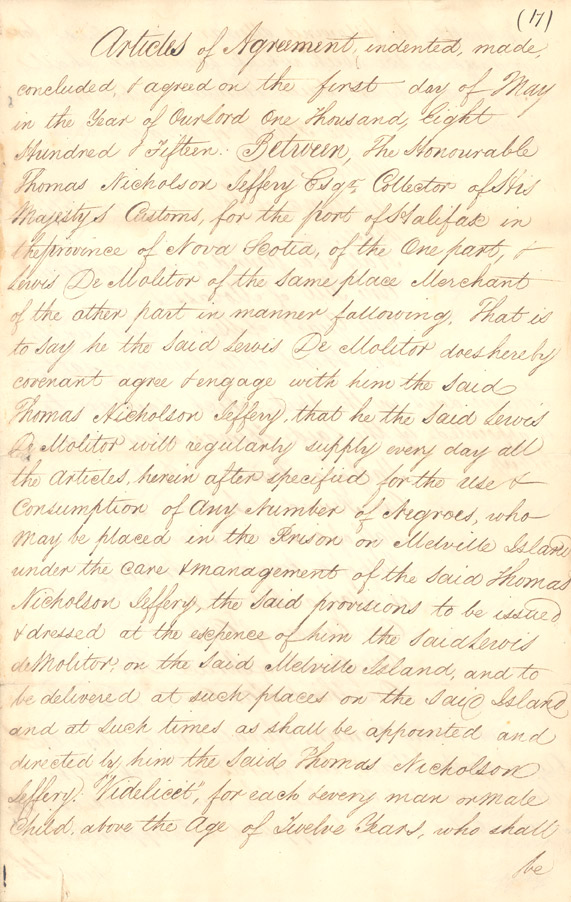 (17)
Articles of Agreement, indented, made,
concluded, & agreed on the first day of May
in the Year of Our Lord One Thousand, Eight
Hundred & Fifteen. Between, The Honourable
Thomas Nicholson Jeffery Esqr. Collector of His
Majesty's Customs, for the port of Halifax in
the province of Nova Scotia, of the One part, &
Lewis De Molitor of the same place Merchant
of the other part in manner following, That is
to say he the said Lewis De Molitor does hereby
covenant agree & engage with him the said
Thomas Nicholson Jeffery, that he the said Lewis
De Molitor will regularly supply every day all
the articles, herein after specified for the use &
Consumption of any Number of Negroes, who
may be placed in the Prison on Melville Island
under the care & management of the said Thomas
Nicholson Jeffery, the said provisions to be issued
& dressed at the expence of him the said Lewis
de Molitor, on the said Melville Island, and to
be delivered at such places on the said Island
and at such times as shall be appointed and
directed by him the said Thomas Nicholson
Jeffery. "Videlicet", for each & every man or male
Child, above the Age of Twelve Years, who shall
be